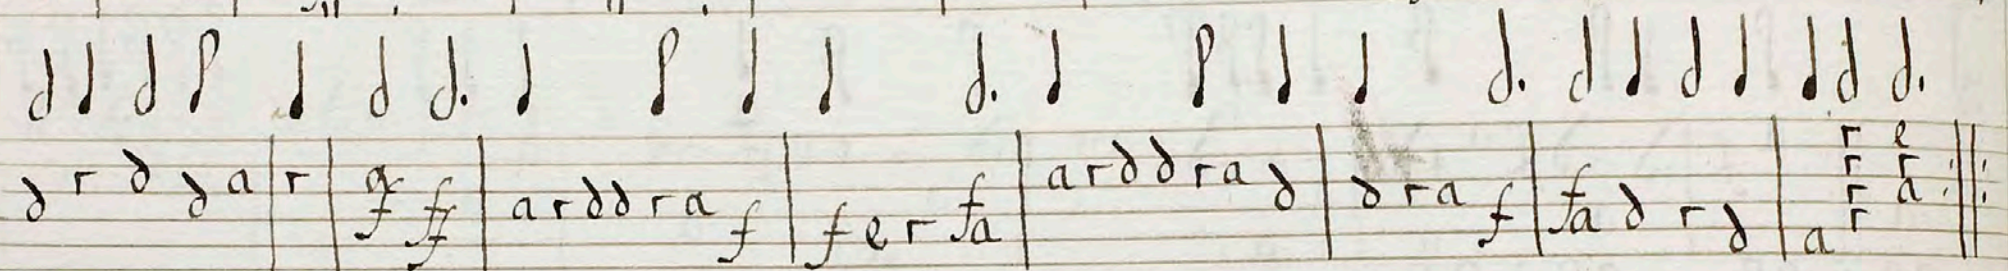 d r d d a | r | a f f f | a r d d r a f | f e r f a | a r d d r a d | d r a f | f a d r d | a r r r r e r a